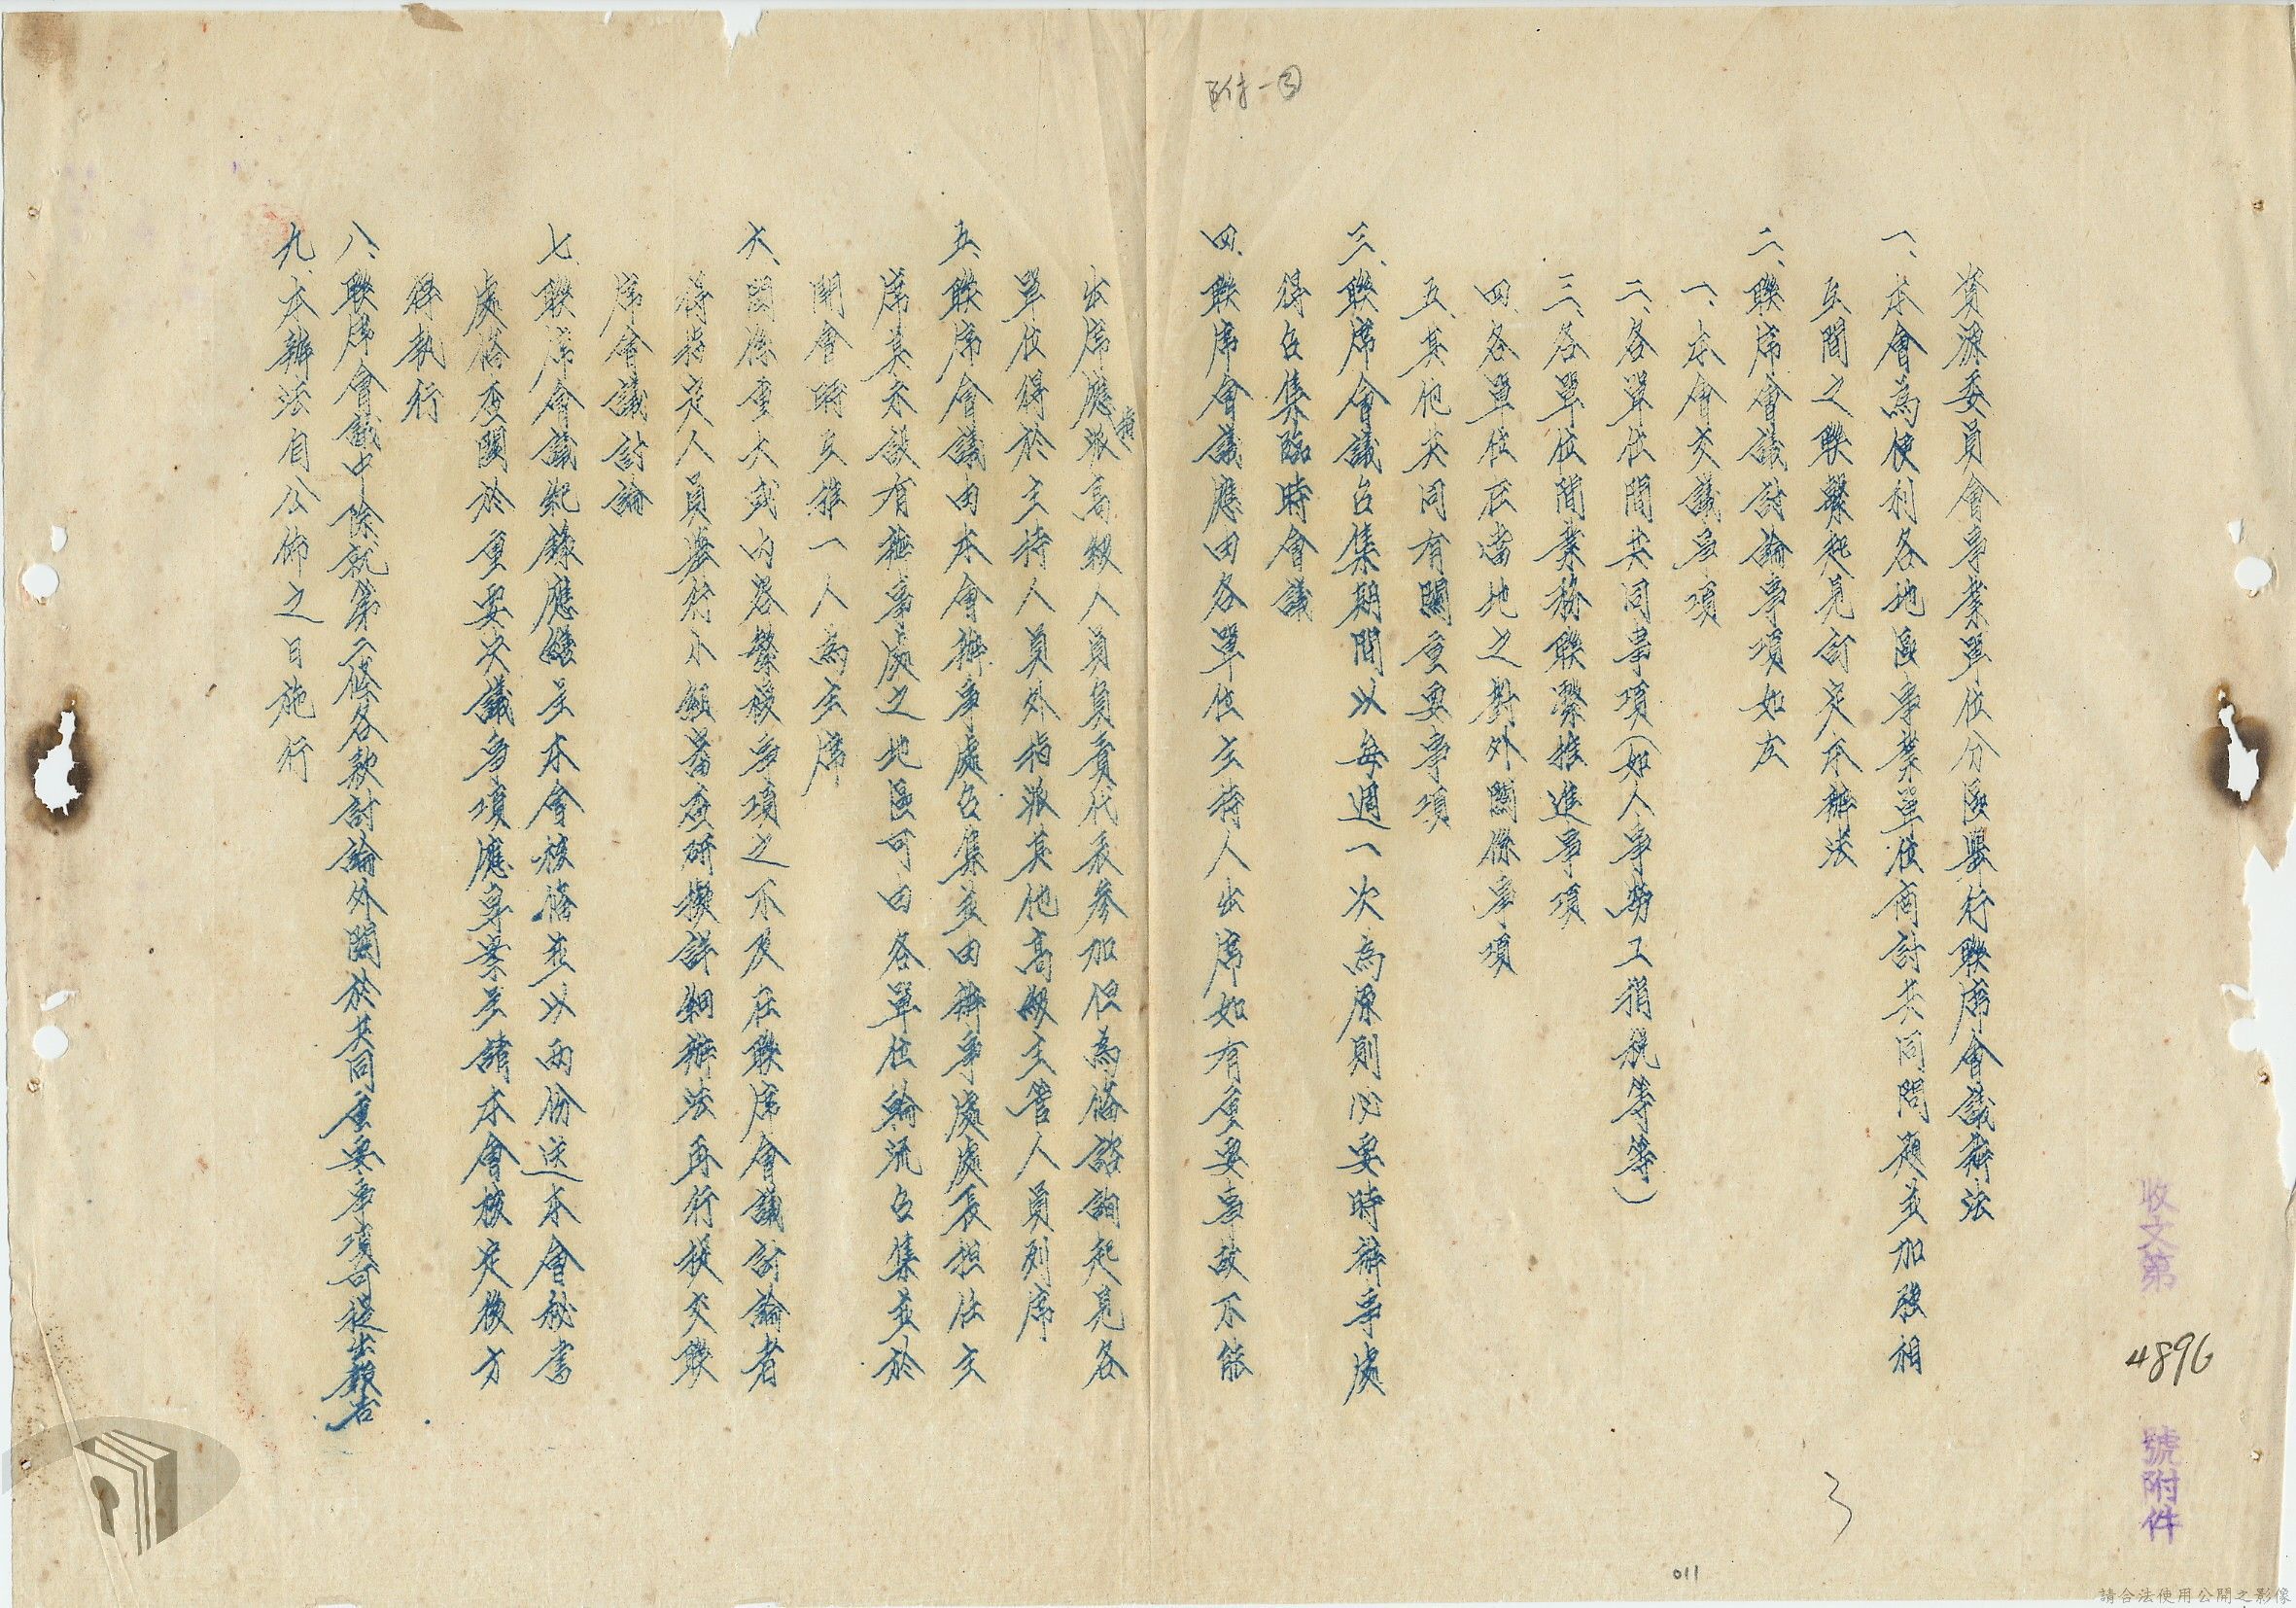 附一③
收文第 4896 號附件
資源委員會事業單位分區舉行聯席會議辦法
一、本會為便利各地區事業單位商討共同問題並加強相
互間之聯繫起見訂定本辦法
二、聯席會議討論事項如左
一、本會交議事項
二、各單位間共同事項(如人事勞工捐稅等等)
三、各單位間業務聯繫推進事項
四、各單位在當地之對外關係事項
五、其他共同有關重要事項
三、聯席會議召集期間以每週一次為原則必要時辦事處
得召集臨時會議
四、聯席會議應由各單位主持人出席如有重要事故不能
出席應指派高級人員負責代表參加但為俻諮詢起見各
單位得於主持人員外指派其他高級主管人員列席
五、聯席會議由本會辦事處召集並由辦事處處長担任主
席其未設有辦事處之地區可由各單位輪流召集並於
開會時互推一人為主席
六、關係重大或內容繁複事項之不及在聯席會議討論者
得指定人員舉行小組審查研擬詳細辦法再行提交聯
席會議討論
七、聯席會議紀錄應繕呈本會核俻並以兩份送本會秘書
處俻查關於重要決議事項應專案呈請本會核定後方
得執行
八、聯席會議中除就第二條各款討論外關於共同重要事項可提出報告
九、本辦法自公佈之日施行
3
011
請合法使用公開之影像